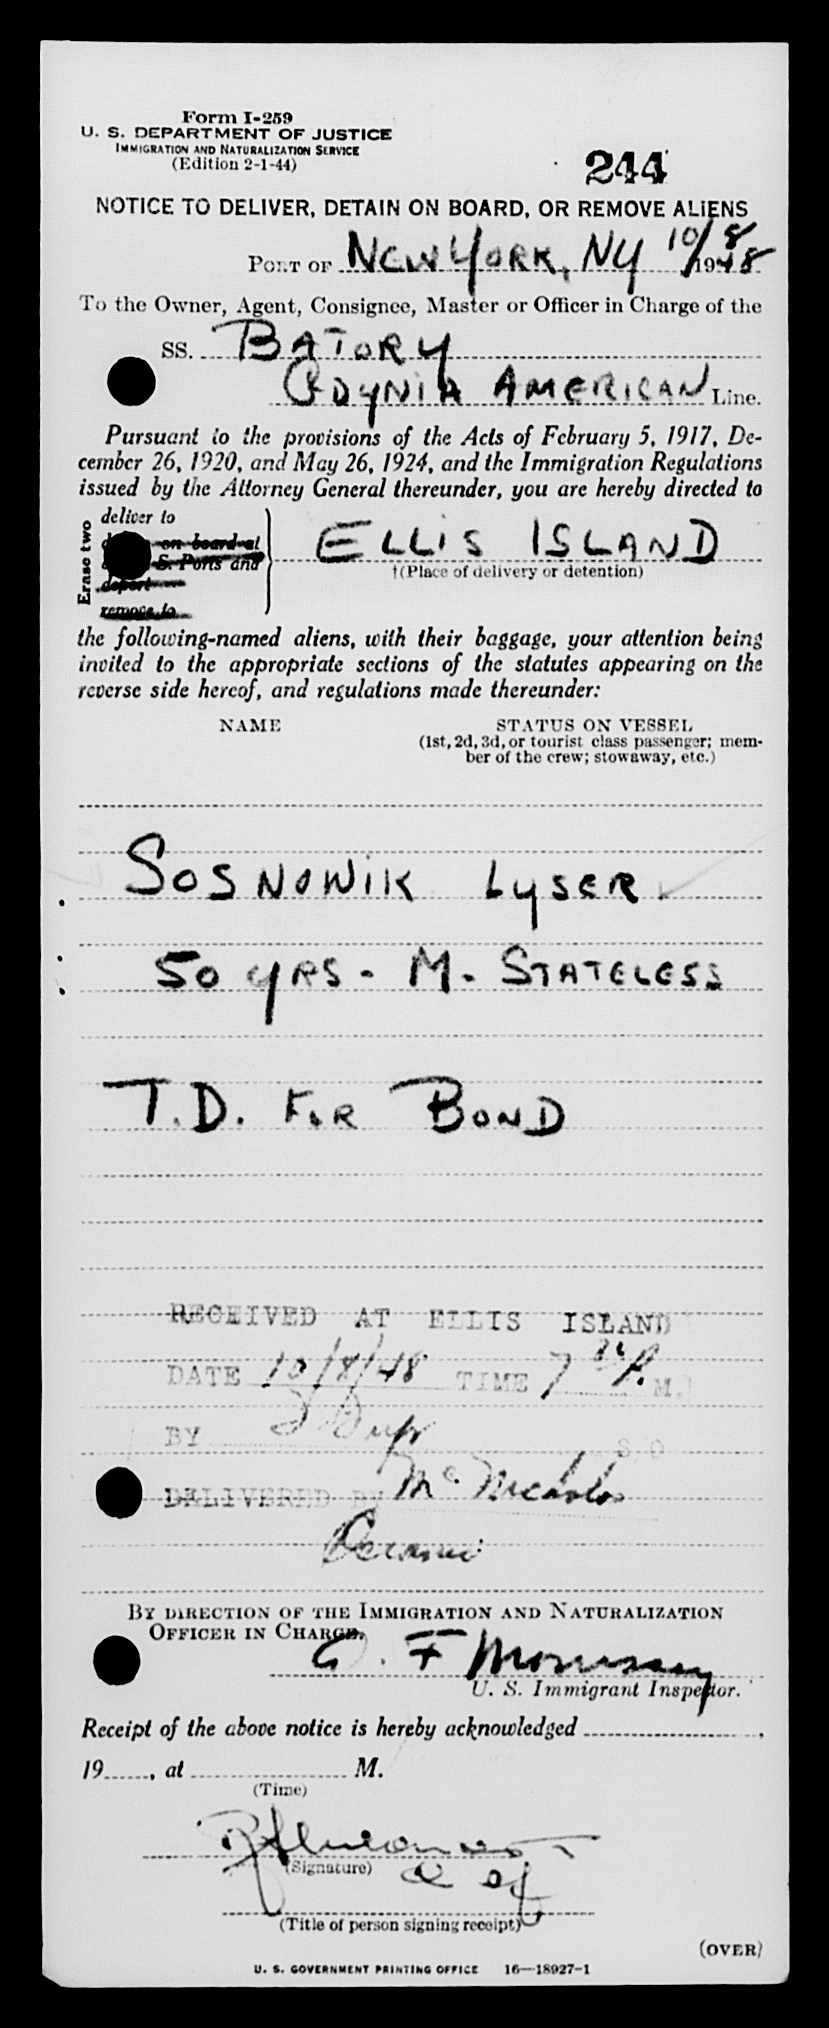 Form I-259
U. S. DEPARTMENT OF JUSTICE
IMMIGRATION AND NATURALIZATION SERVICE
(Edition 2-1-44)
244
NOTICE TO DELIVER, DETAIN ON BOARD, OR REMOVE ALIENS
PORT OF NEW YORK, NY 10/8 1948
To the Owner, Agent, Consignee, Master or Officer in Charge of the
SS. BATORY
GDYNIA AMERICAN Line.
Pursuant to the provisions of the Acts of February 5, 1917, De-
cember 26, 1920, and May 26, 1924, and the Immigration Regulations
issued by the Attorney General thereunder, you are hereby directed to
Erase two
deliver to
on board at
S. Ports and
deport
remove to
ELLIS ISLAND
†(Place of delivery or detention)
the following-named aliens, with their baggage, your attention being
invited to the appropriate sections of the statutes appearing on the
reverse side hereof, and regulations made thereunder:
NAME STATUS ON VESSEL
(1st, 2d, 3d, or tourist class passenger; mem-
ber of the crew; stowaway, etc.)
SOSNOWIK LYSER
50 YRS - M. STATELESS
T.D. FOR BOND
RECEIVED AT ELLIS ISLAND
DATE 10/8/48 TIME 7 P. M.
BY
DELIVERED BY McNicholas
BY DIRECTION OF THE IMMIGRATION AND NATURALIZATION
OFFICER IN CHARGE.
F Morrissey
U. S. Immigrant Inspector.
Receipt of the above notice is hereby acknowledged
19, at M.
(Time)
(Signature)
(Title of person signing receipt)
(OVER)
U. S. GOVERNMENT PRINTING OFFICE 16—18927-1